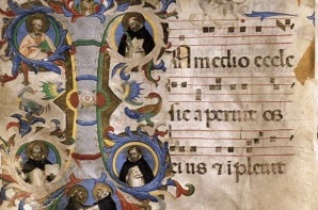 In medio eccle
sie aperuit os
eius et ipleuit